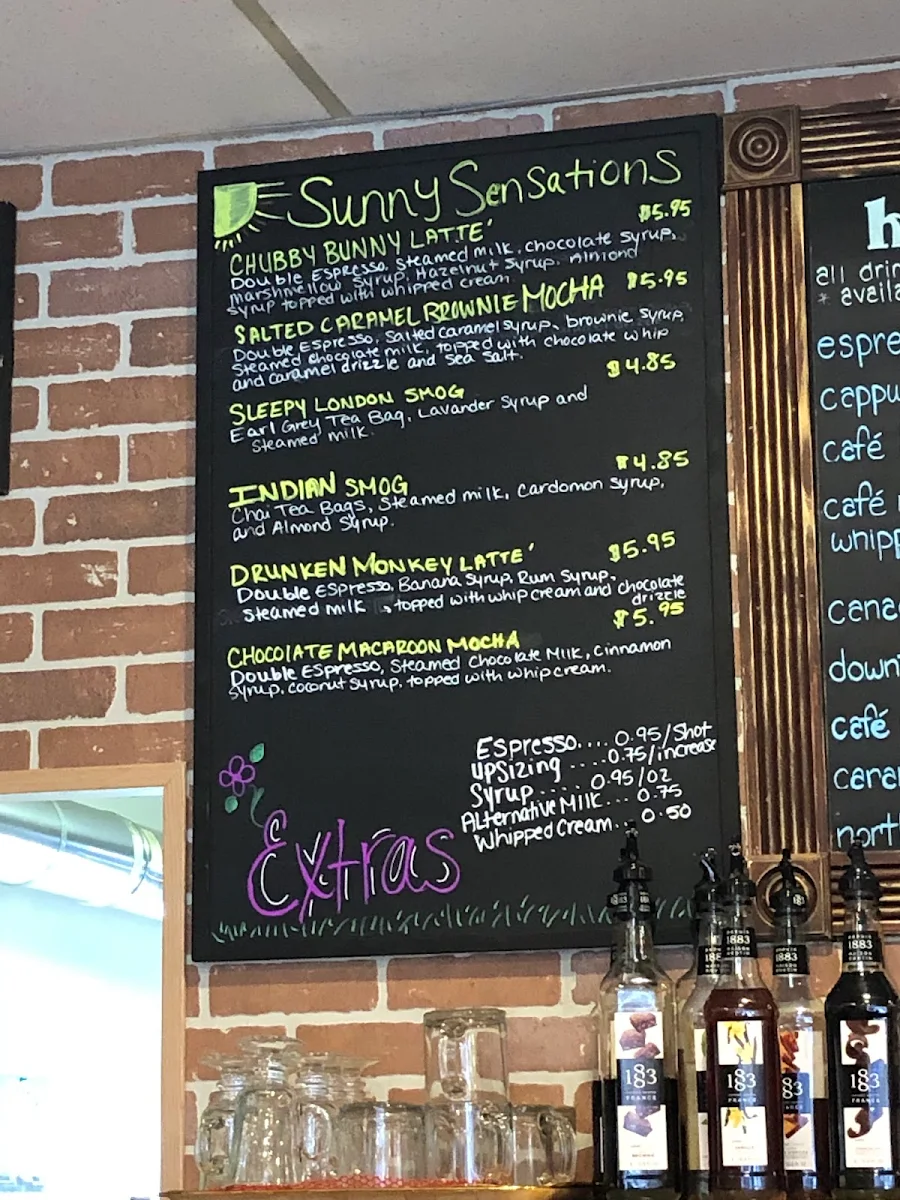 Sunny Sensations
CHUBBY BUNNY LATTE' $5.95
Double Espresso, Steamed milk, chocolate syrup,
marshmellow syrup, Hazelnut syrup. Almond
syrup topped with whipped cream.
SALTED CARAMEL BROWNIE MOCHA $5.95
Double Espresso, Salted caramel syrup, brownie syrup,
Steamed chocolate milk, topped with chocolate whip
and caramel drizzle and sea salt.
SLEEPY LONDON SMOG $4.85
Earl Grey Tea Bag, Lavander Syrup and
Steamed milk.
INDIAN SMOG $4.85
Chai Tea Bags, Steamed milk, Cardomon syrup,
and Almond Syrup.
DRUNKEN MONKEY LATTE' $5.95
Double Espresso, Banana Syrup, Rum Syrup,
Steamed milk, topped with whip cream and chocolate
drizzle
CHOCOLATE MACAROON MOCHA $5.95
Double Espresso, Steamed Chocolate Milk, Cinnamon
Syrup, coconut syrup, topped with whip cream.
Espresso.... 0.95/Shot
Upsizing ....0.75/increase
Syrup .... 0.95/oz
Alternative Milk... 0.75
Whipped Cream... 0.50
Extras
h
all drin
* availa
espre
cappu
café
café
whipp
cana
down
café
cara
north
1883
1883
1883
1883
1883
FRANCE
1883
FRANCE
83
1883
FRANCE